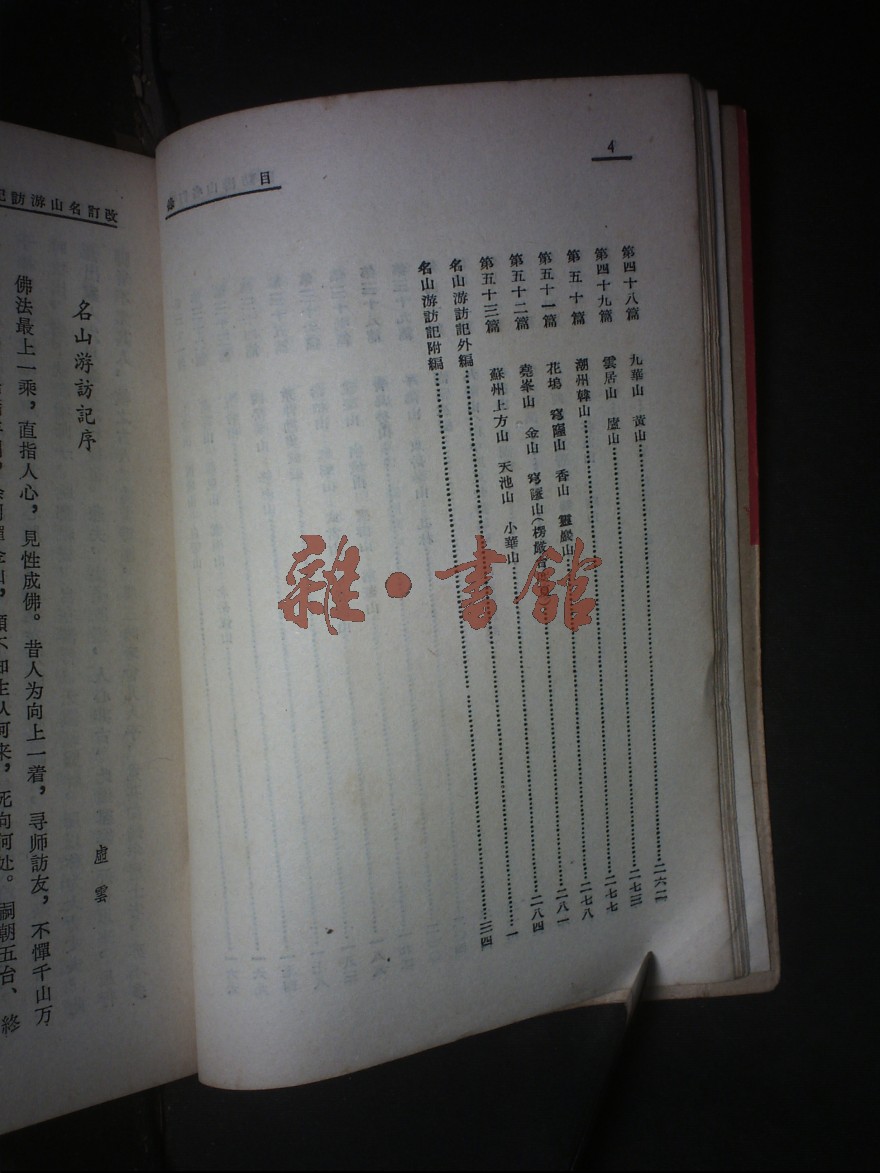 4
目
第四十八篇 九華山 黃山……二六二
第四十九篇 雲居山 廬山……二七三
第五十篇 潮州韓山……二七七
第五十一篇 花塢 穹窿山 香山 靈巖山……二七八
第五十二篇 堯峯山 金山 穹窿山(楞嚴台……二八一
第五十三篇 蘇州上方山 天池山 小華山……二八四
名山游訪記外編……一
名山游訪記附編……三四
改訂名山游訪記
名山游訪記序
虛雲
佛法最上一乘，直指人心，見性成佛。昔人为向上一着，寻师訪友，不憚千山万
不知生从何来，死向何处。嗣朝五台、終
雜·書館